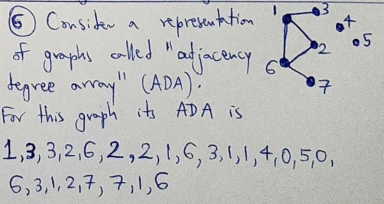 ⑥ Consider a representation
of graphs called "adjacency
degree array" (ADA).
For this graph its ADA is
1,3,3,2,6,2,2,1,6,3,1,1,4,0,5,0,
6,3,1,2,7,7,1,6
1
3
4
5
2
6
7